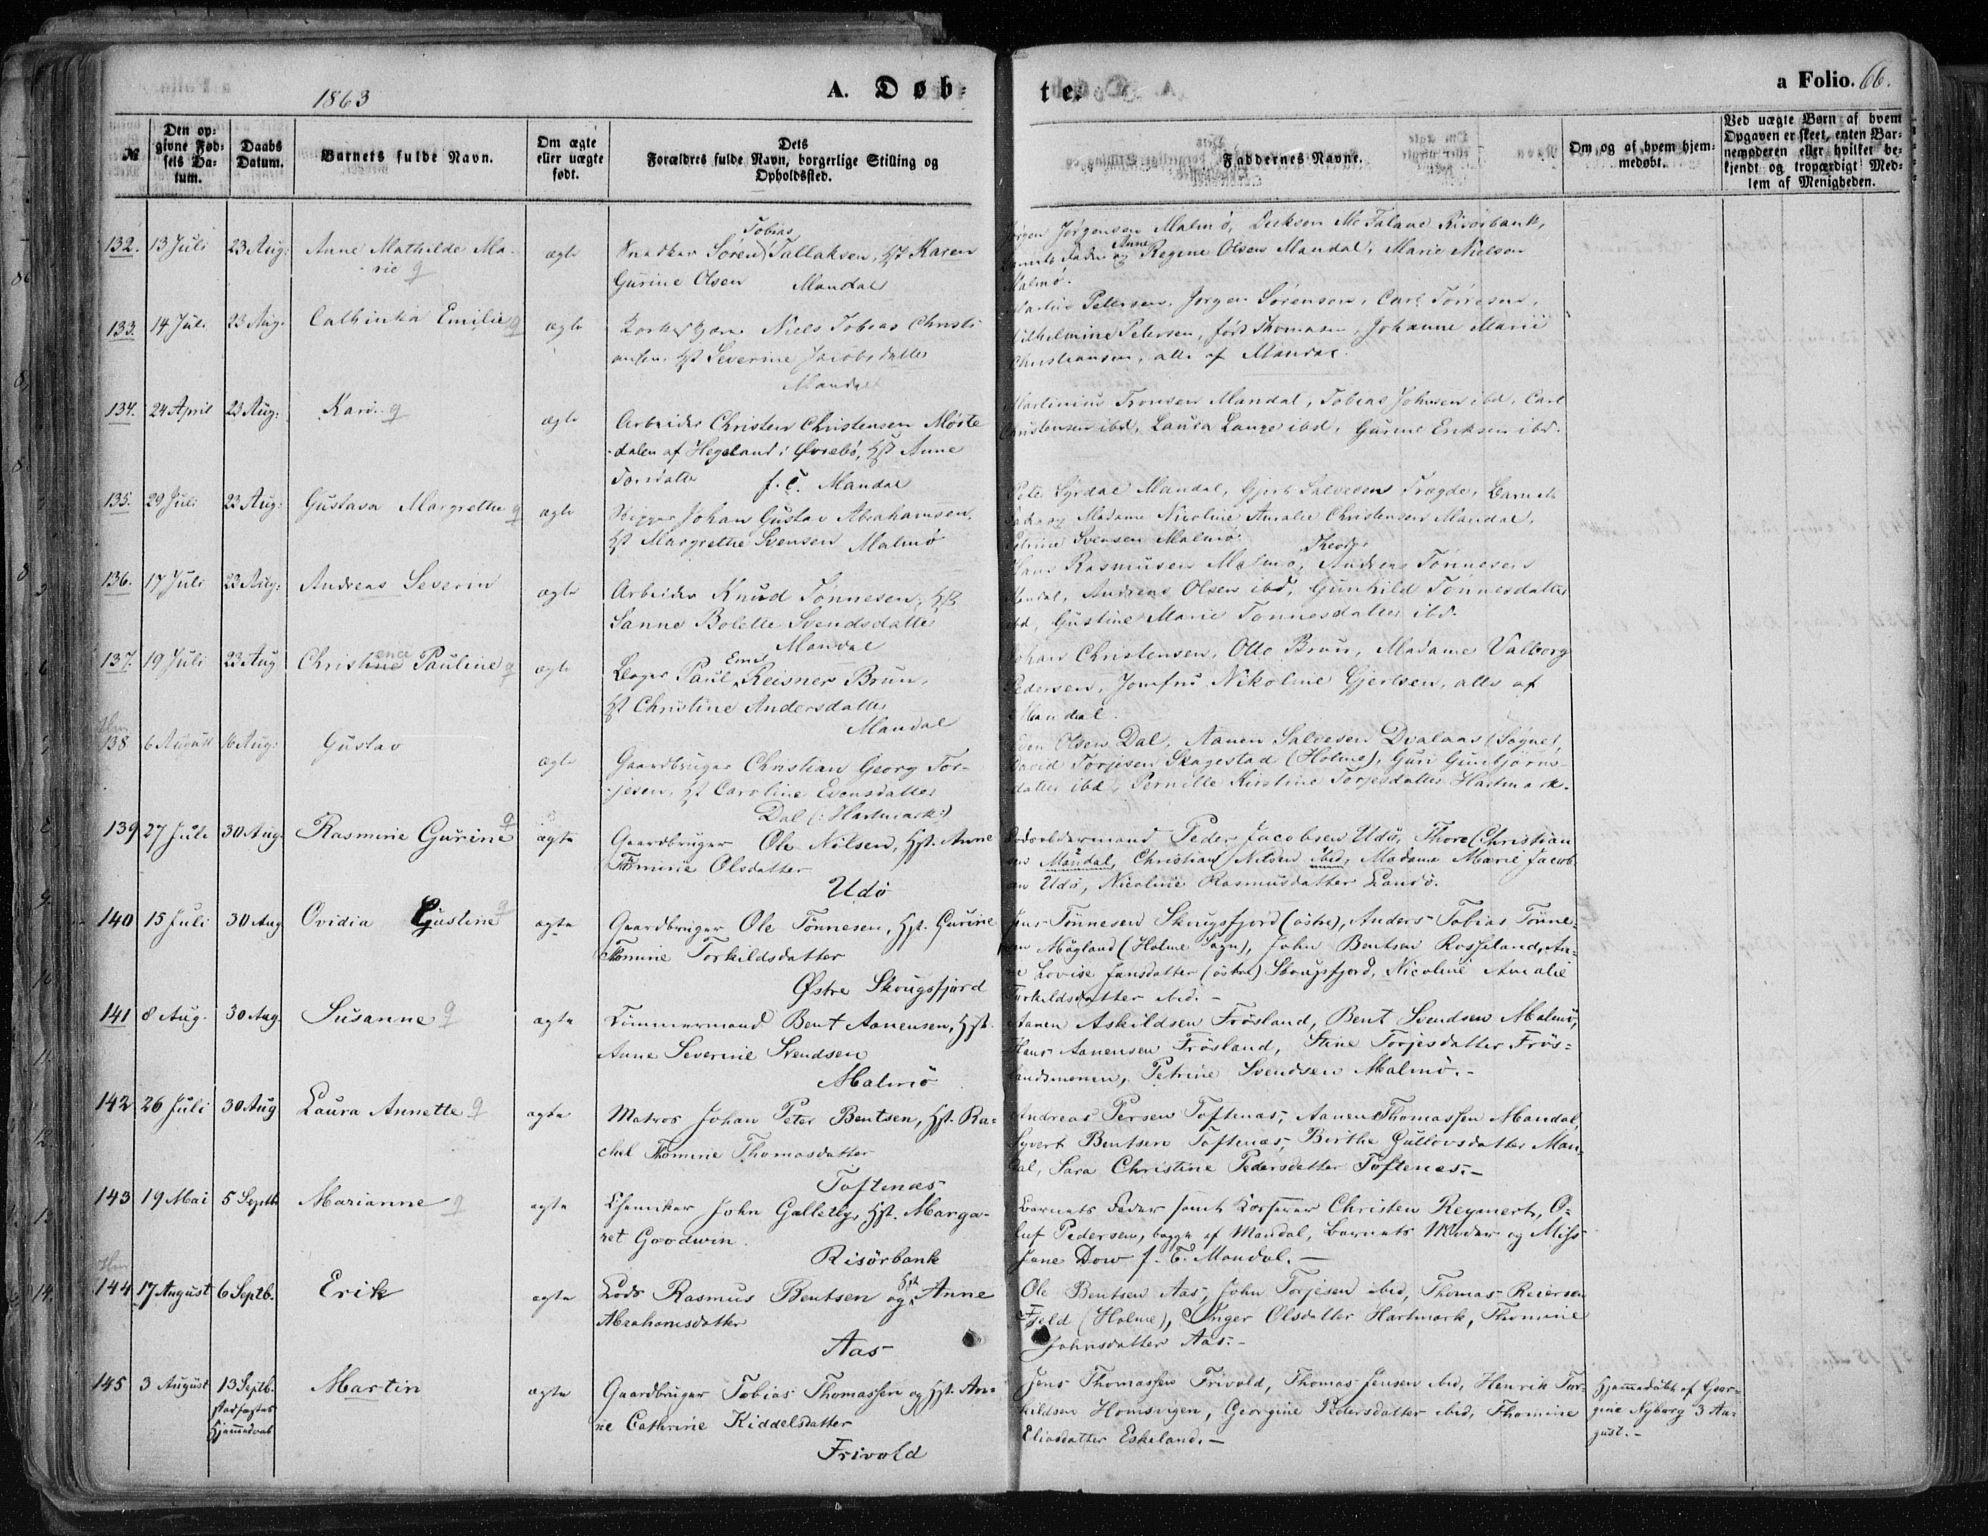 1863
A. Døb-
te.
a Folio. 66.
№
Den op-
givne Fød-
sels Da-
tum.
Daabs
Datum.
Barnets fulde Navn.
Om ægte
eller uægte
født.
Dets
Forældres fulde Navn, borgerlige Stilling og
Opholdssted.
Faddernes Navne.
Om og af hvem hjem-
medøbt.
Ved uægte Børn af hvem
Opgaven er skeet, enten Bar-
nemoderen eller hvilket be-
kjendt og troværdigt Med-
lem af Menigheden.
132. 13 Juli 23 Aug: Anne Mathilde Ma-
rie
ægte
Tobias
Snedker Søren Tallaksen, Hst Karen
Gurine Olsen Mandal
Jørgen Jørgensen Malmø, Risørbank,
Barnets Fader og Anne Regine Olsen Mandal, Marie Nielsen
Malmø.
133. 14 Juli 23 Aug. Cathinka Emilie
ægte
Niels Tobias Christi
ansen, Hst Severine Jacobsdatter
Mandal
Petersen, Jørgen Sørensen, Carl Tørresen,
Wilhelmine Petersen, født Thomasen, Johanne Marie
Christiansen, alle af Mandal.
134. 24 April 23 Aug: Kari
ægte
Arbeider Christen Christensen Møste
dalen af Hegeland i Øvrebø, Hst Anne
Torisdatter f. T. Mandal
Martinius Tronsen Mandal, Tobias Johnsen ibd, Carl
Christensen ibd, Laura Lange ibd, Gurine Eriksen ibd.
135. 29 Juli 23 Aug: Gustava Margrethe
ægte
Skipper Johan Gustav Abrahamsen,
Hst Margrethe Svensen Malmø
Peter Syrdal Mandal, Gjert Salvesen Trægde, Barnets
Fader og Madame Nicoline Amalie Christensen Mandal,
Petrine Svensen Malmø.
136. 17 Juli 23 Aug: Andreas Severin
ægte
Arbeider Knud Tønnesen, Hst
Sanne Bolette Svendsdatter
Mandal
Hans Rasmusen Malmø, Andreas Tønnesen
Mandal, Andreas Olsen ibd, Gunhild Tønnesdatter
ibd, Gustine Marie Tønnesdatter ibd.
137. 19 Juli 23 Aug Christine Pauline
ægte
Bager Paul Emil Reisner Brun,
Hst Christine Andersdatter
Mandal
Johan Christensen, Otto Brun, Madame Valborg
Pedersen, Jomfru Nikoline Gjertsen, alle af
Mandal.
138 6 August 16 Aug: Gustav
ægte
Gaardbruger Christian Georg Tor-
jesen, Hst Caroline Evensdatter
Dal (: Hartmark :)
Even Olsen Dal, Aanen Salvesen Dvalaas (Søgne),
David Torjesen Skagestad (Holme), Guri Gunbjørns-
datter ibd, Pernille Kirstine Torjesdatter Hartmark.
139 27 Juli 30 Aug. Rasmine Gurine
ægte
Gaardbruger Ole Nilsen, Hst. Anne
Tomine Olsdatter
Udø
Lodsoldermand Peder Jacobsen Udø, Thore Christian
sen Mandal, Christian Nilsen ibid, Madame Marie Jacob
sen Udø, Nicoline Rasmusdatter Landø.
140 15 Juli 30 Aug Ovidia Gustine
ægte
Gaardbruger Ole Tønnesen, Hst. Gurine
Tomine Torkildsdatter
Østre Skougsfjord
Jens Tønnesen Skougsfjord (østre), Anders Tobias Tønne-
sen Møgland (Holme Sogn), John Bentsen Rosseland, An-
ne Lovise Jansdatter (østre) Skougsfjord, Nicoline Amalie
Torkildsdatter ibid. -
141 8 Aug. 30 Aug. Susanne
ægte
Tømmermand Bent Aanensen, Hst.
Anne Severine Svendsen
Malmø
Aanen Askildsen Frøsland, Bent Svendsen Malmø,
Hans Aanensen Frøsland, Stine Torjesdatter Frøs-
landsmonen, Petrine Svendsen Malmø. -
142 26 Juli 30 Aug Laura Annette
ægte
Matros Johan Peter Bentsen, Hst. Ra-
chel Tomine Thomasdatter
Toftenæs
Andreas Persen Toftenæs, Aanen Thomassen Mandal,
Syvert Bentsen Toftenæs, Birthe Gullovsdatter Man-
dal, Sara Christine Pedersdatter Toftenæs. -
143 19 Mai 5 Septb. Marianne
ægte
Chemiker John Galletly, Hst. Marga-
ret Goodwin.
Risörbank
Barnets Fader samt Christen Reymert, O-
luf Pedersen, begge af Mandal, Barnets Moder og Miss
Jane Dow f. T. Mandal. -
144 17 August 6 Septb. Erik
ægte
Lods Rasmus Bentsen og Hst. Anne
Abrahamsdatter
Aas
Ole Bentsen Aas, John Torjesen ibid, Thomas Reiersen
Fjeld (Holme), Inger Olsdatter Hartmark, Thomine
Johnsdatter Aas. -
145 3 August 13 Septb.
stadfæstet
Hjemmedaab
Martin
ægte
Gaardbruger Tobias Thomassen og Hst. An-
ne Cathrine Kiddelsdatter
Frivold
Jens Thomassen Frivold, Thomas Jensen ibid, Henrik Tor-
kildsen Homsvigen, Georgine Pedersdatter ibid, Thomine
Eliasdatter Eskeland. -
Hjemmedøbt af Geor-
gine Nyborg 3 Au-
gust. -